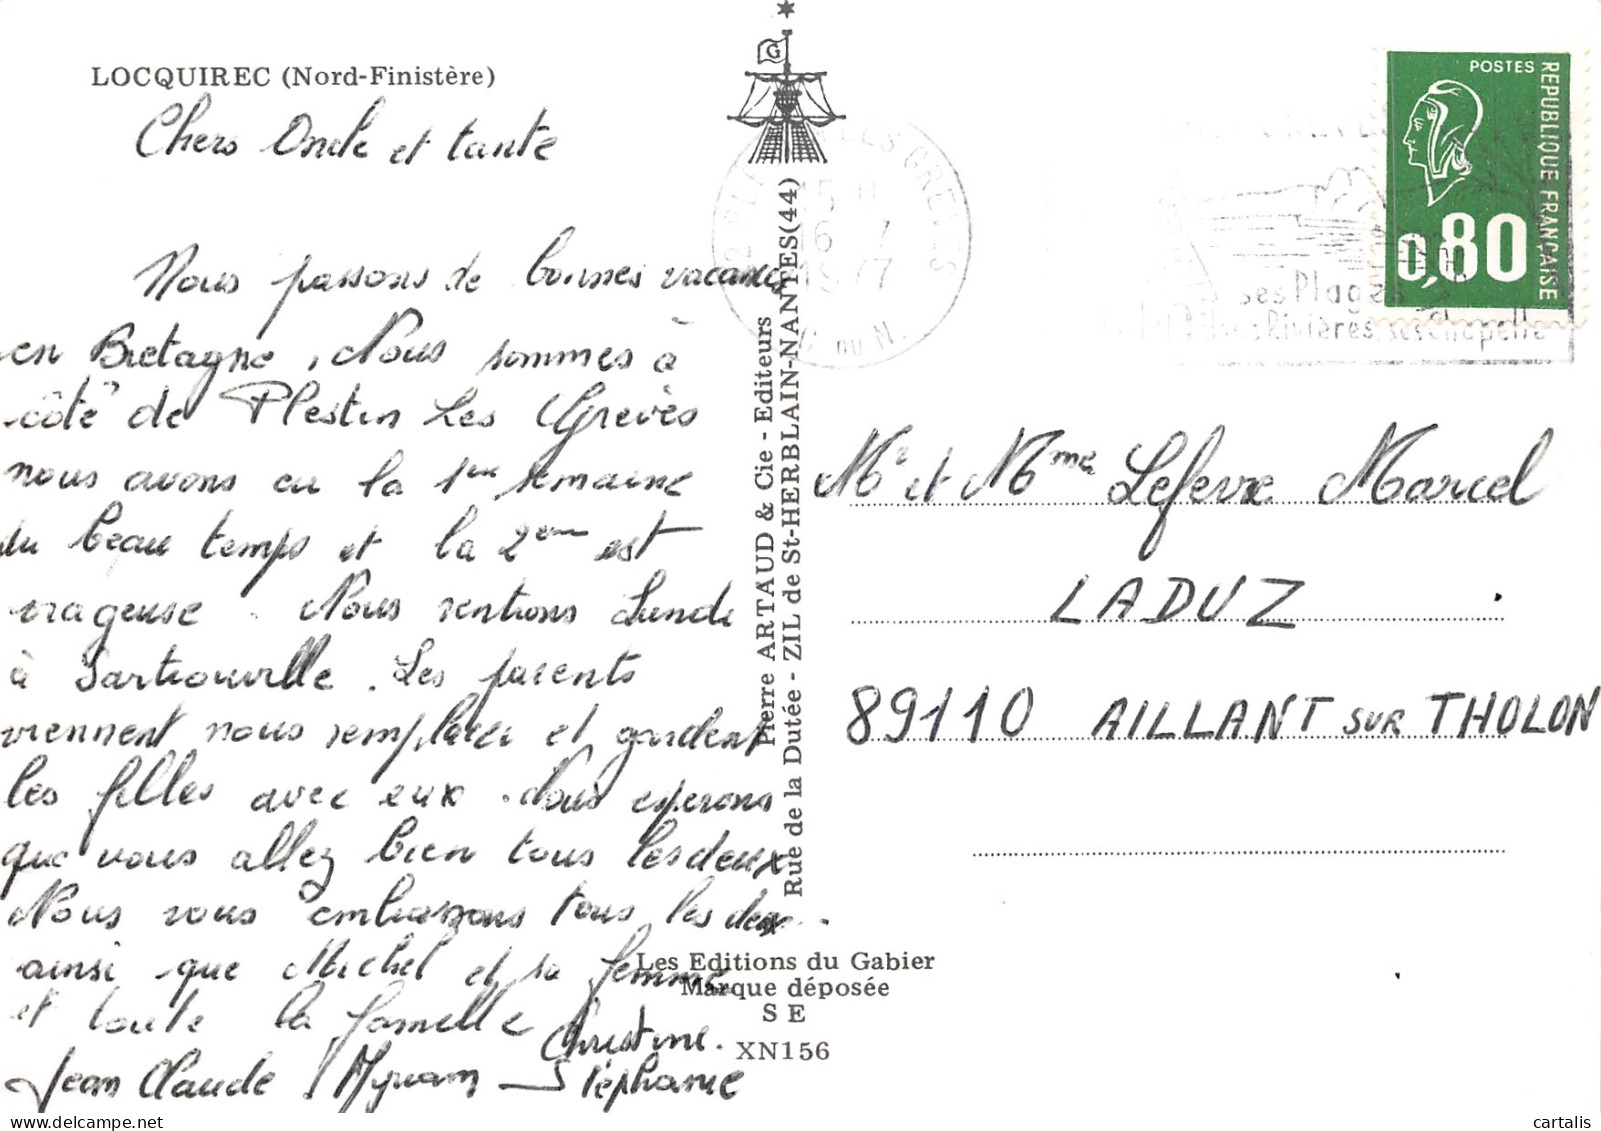 LOCQUIREC (Nord-Finistère)
Chers Oncle et tante
Nous passons de bonnes vacances
en Bretagne. Nous sommes à
côté de Plestin Les Grèves
nous avons eu la 1ère semaine
du beau temps et la 2ème est
orageuse. Nous rentrons Lundi
à Sartrouville. Les parents
viennent nous remplacer et gardent
les filles avec eux. Nous esperons
que vous allez bien tous les deux
Nous vous embrassons tous les deux
ainsi que Michel et sa femme
et toute la famille
Christine.
Jean Claude Myriam Stéphanie
G
Pierre ARTAUD & Cie - Editeurs
Rue de la Dutée - ZIL de St-HERBLAIN-NANTES (44)
Les Editions du Gabier
Marque déposée
S E
XN156
LES GREVES
15 H
16 7
1977
C. DU N.
ses Plages
ses Rivières, ses Chapelle
POSTES
REPUBLIQUE FRANÇAISE
0,80
Mr et Mme Lefevre Marcel
LADUZ
89110 AILLANT SUR THOLON
cartalis